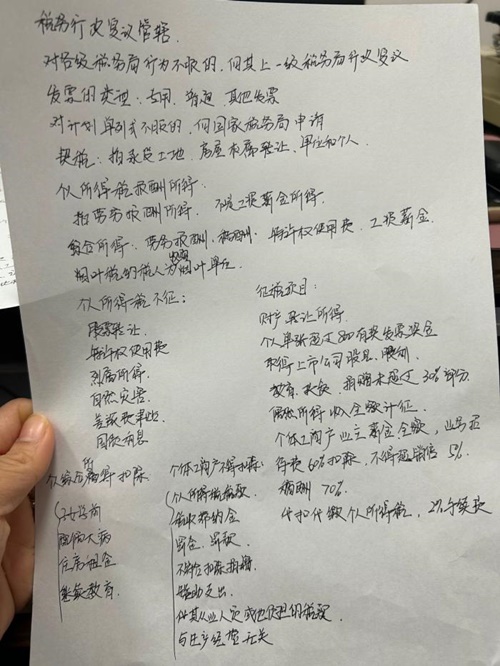 税务行政复议管辖.
对各级税务局行为不服的,向其上一级税务局行政复议
发票的类型:专用 普通 其他发票
对计划单列市不服的,向国家税务局申请
契税:指承受土地、房屋权属转让,单位和个人
个人所得税报酬所得:
指劳务报酬所得. 不是工资薪金所得.
综合所得:劳务报酬、稿酬、特许权使用费、工资薪金.
烟叶税的税人为收购烟叶单位.
个人所得税不征:
股票转让.
特许权使用费
烈属所得.
自然灾害
国债利息
征税项目:
财产转让所得
个人单张超过800有奖发票奖金
取得上市公司股息,
教育、扶贫、捐赠未超过30%部分
偶然所得收入全额计征.
个体工商户业主薪金全额,
待费60%扣除,不得超销售5‰
稿酬 70%
代扣代缴个人所得税,2%手续费
个人综合所得扣除
子女学前
大病
住房租金
继续教育.
个体工商户不得扣除:
个人所得税税款
罚金、罚款
赞助支出
与生产经营无关